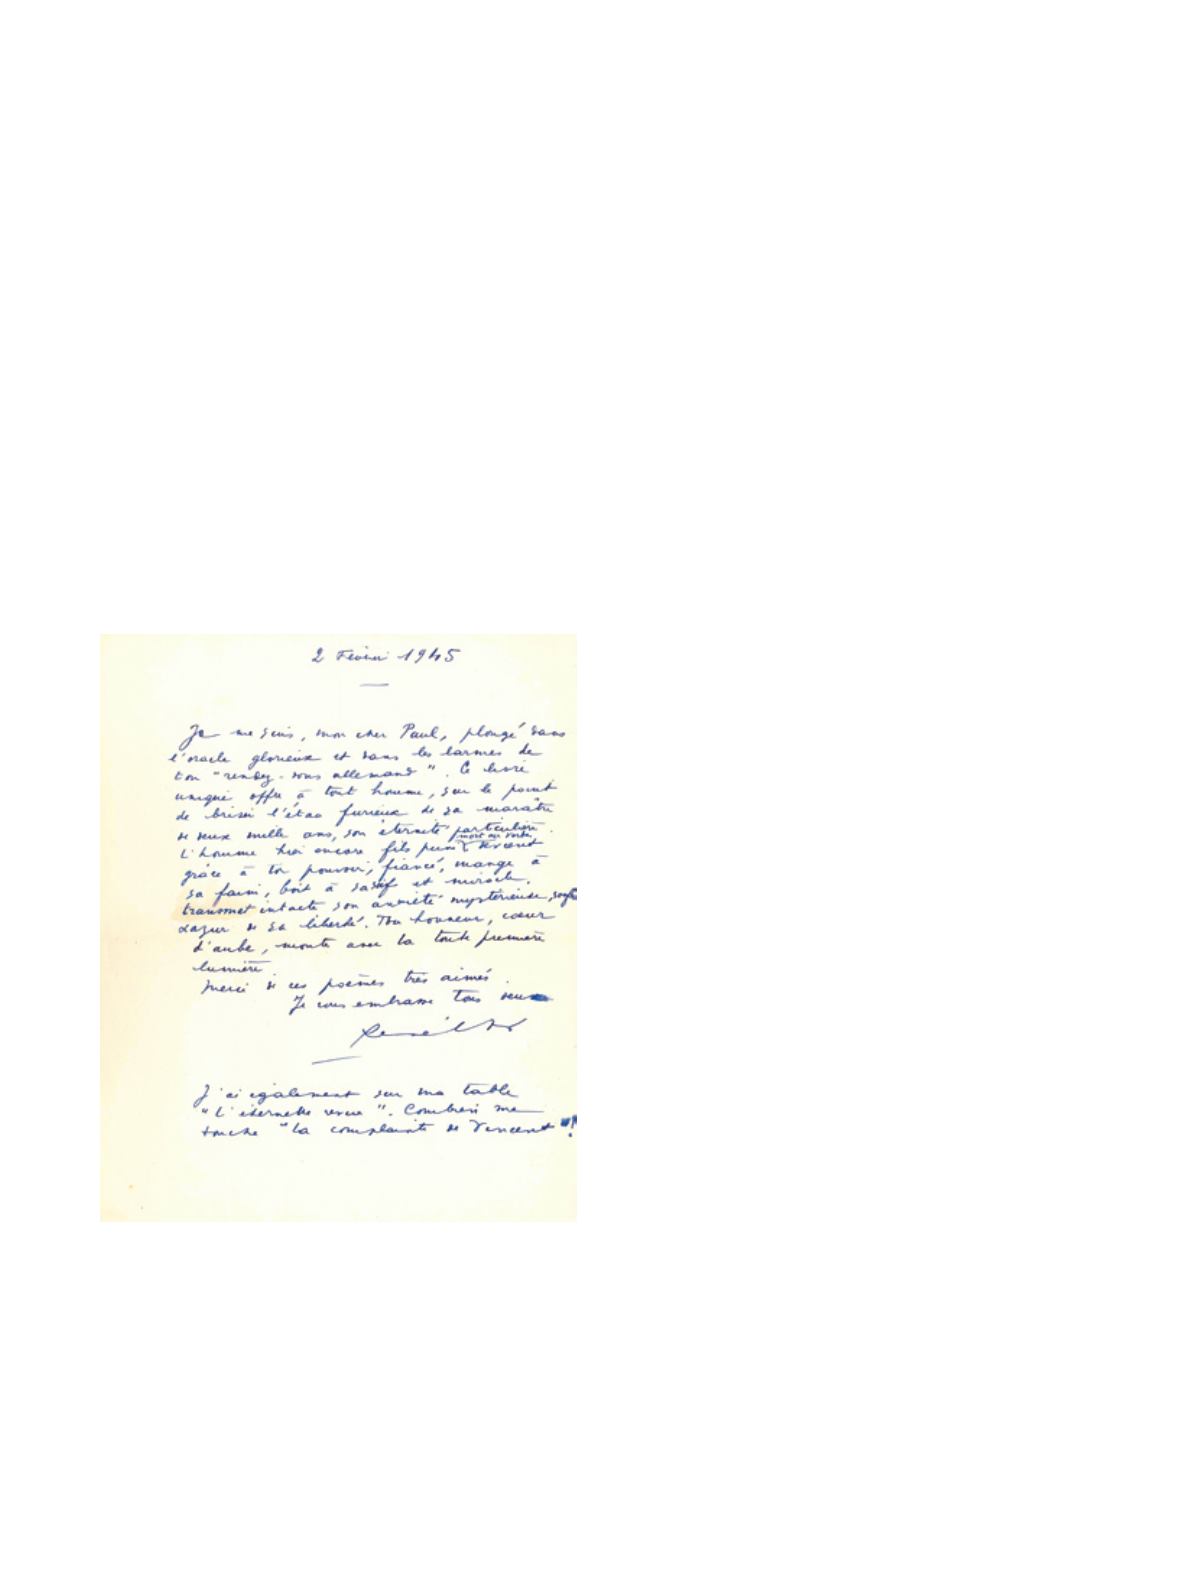 2 Février 1945
Je me suis, mon cher Paul, plongé dans
l'oracle glorieux et dans les larmes de
ton "rendez-vous allemand". Ce livre
unique offre à tout homme, sur le point
de briser l'étau furieux de sa marâtre
de deux mille ans, son éternité particulière.
L'homme hier encore fils puni mort ou devient
grâce à ton pouvoir, fiancé, mange à
sa faim, boit à sa soif et miracle,
transmet intacte son anxiété mystérieuse,
azur de sa liberté. Ton honneur, cœur
d'aube, monte avec la toute première
lumière.
Merci de ces poèmes très aimés.
Je vous embrasse tous deux
René Char
J'ai également sur ma table
"L'éternelle revue". Combien me
touche "La complainte de Vincent"!